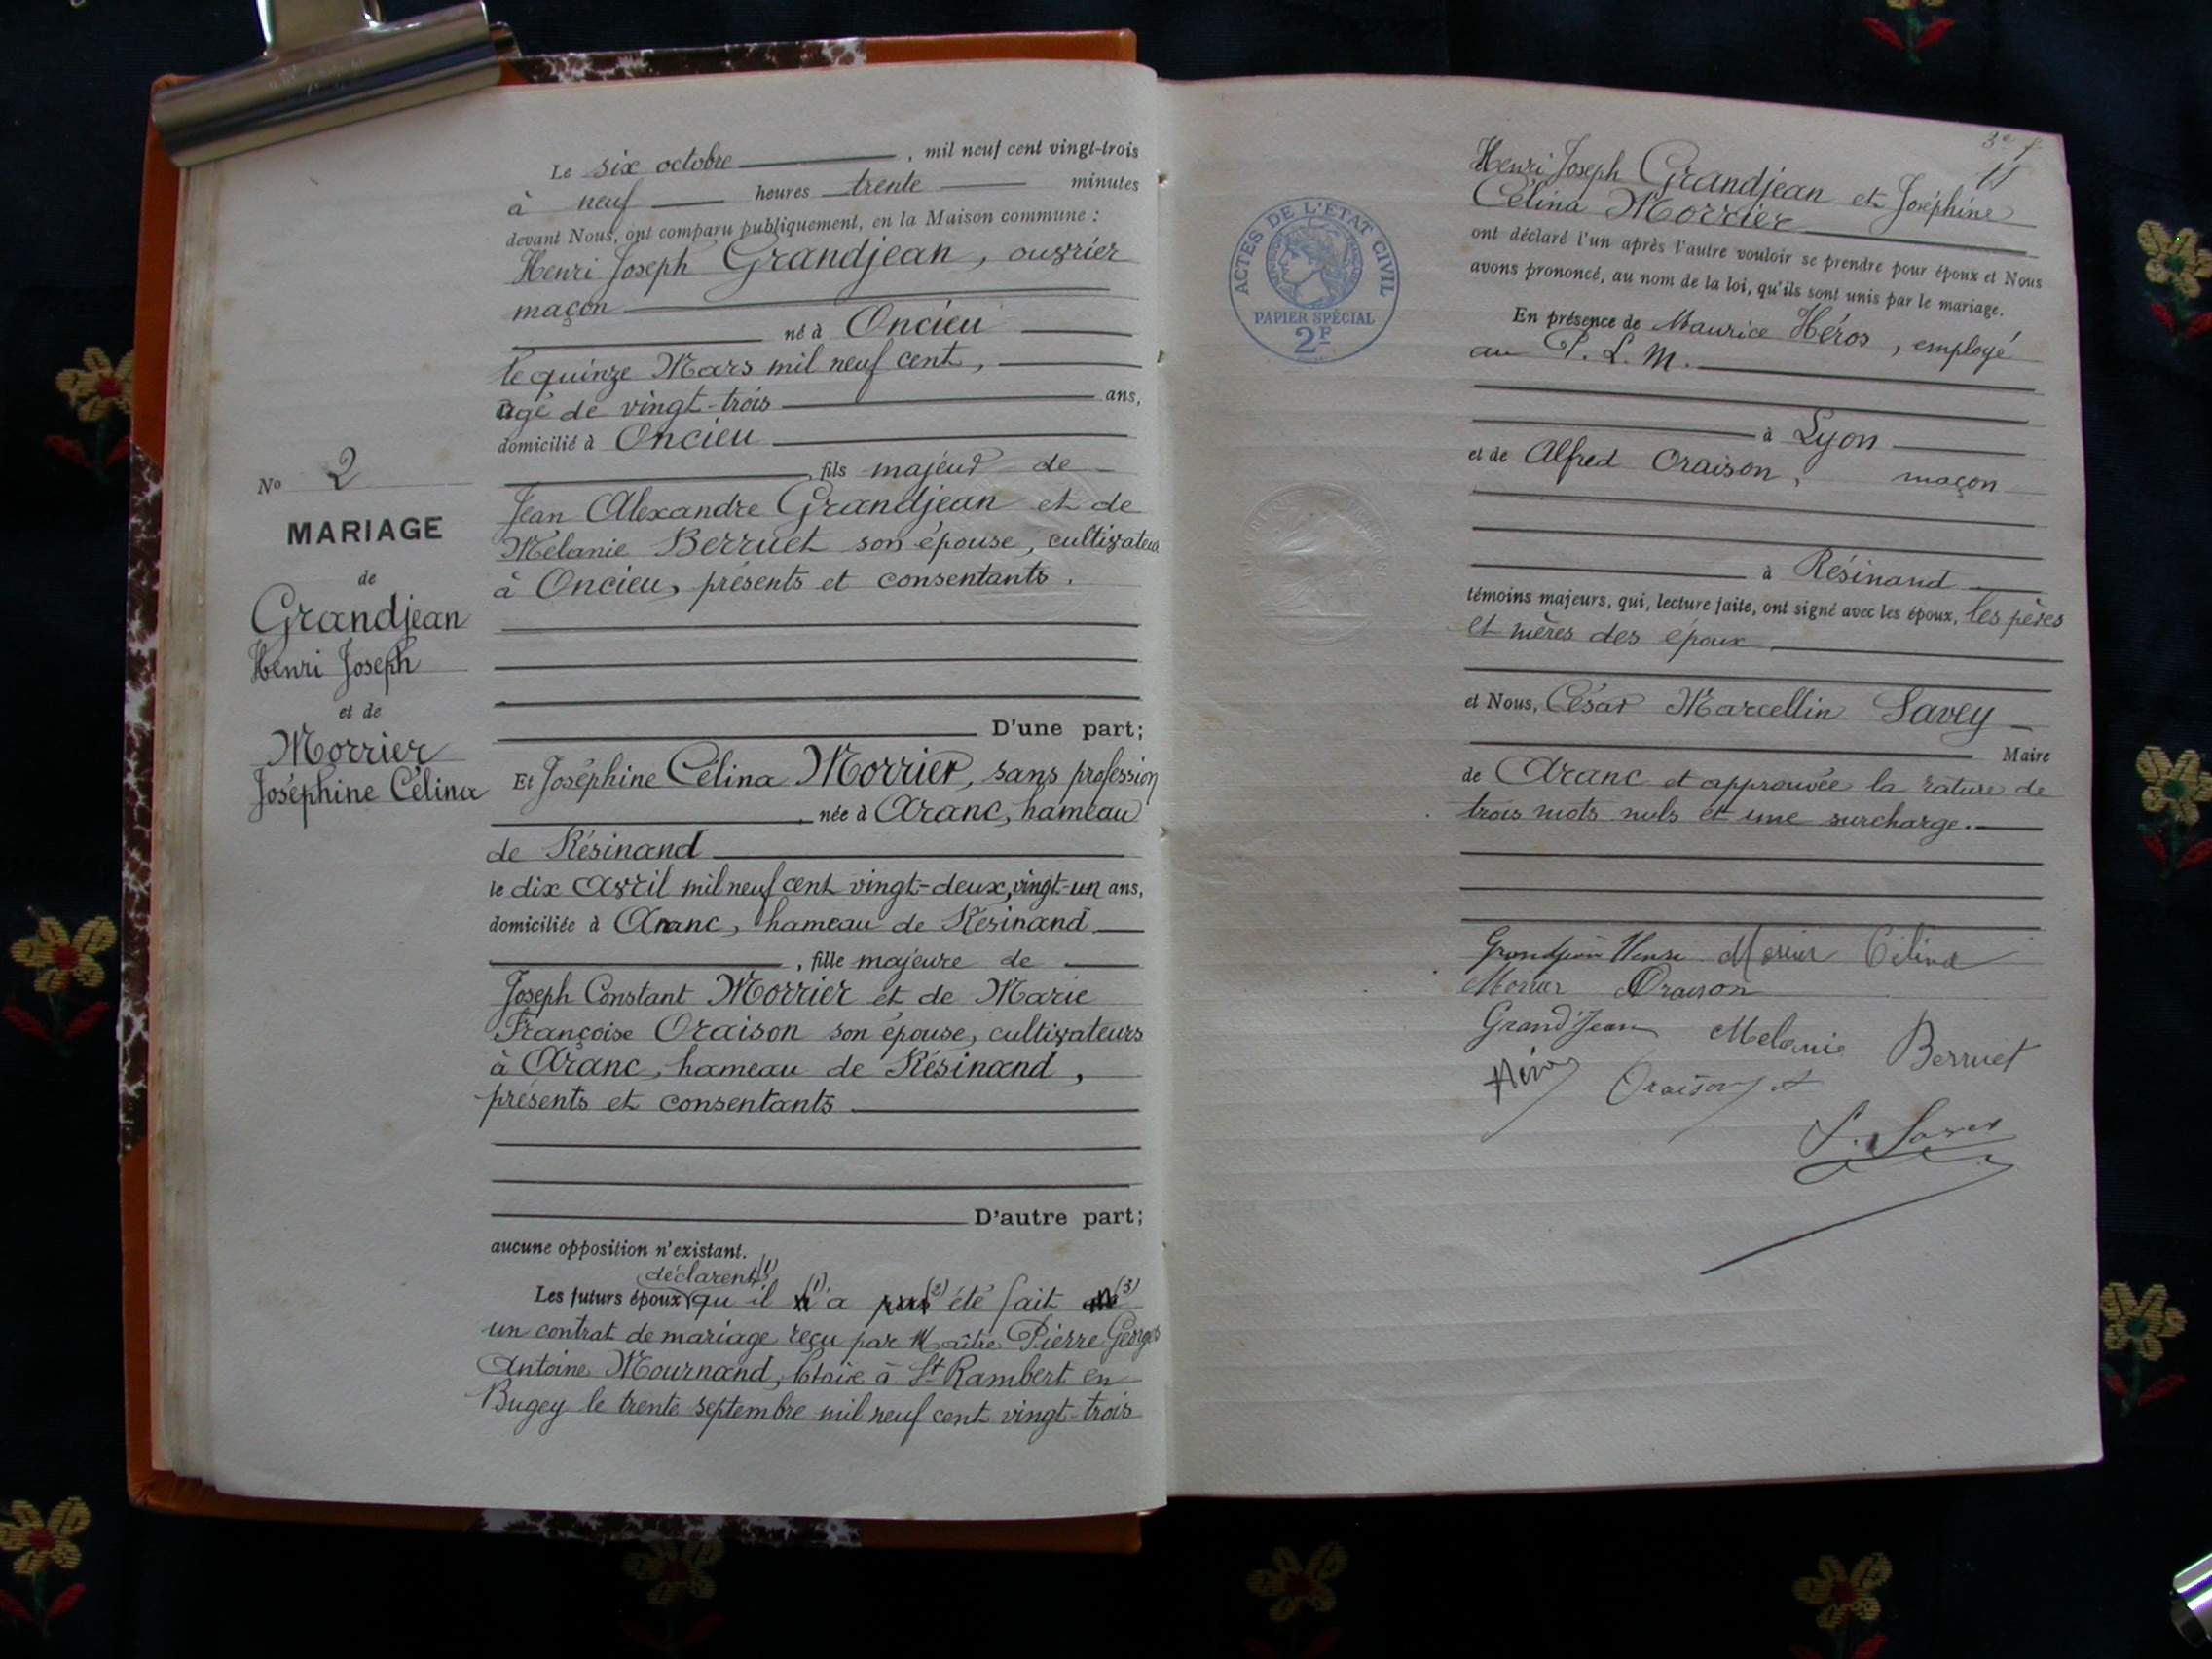 Le six octobre, mil neuf cent vingt-trois
à neuf heures trente minutes
devant Nous, ont comparu publiquement, en la Maison commune :
Henri Joseph Grandjean, ouvrier
maçon
né à Oncieu
le quinze Mars mil neuf cent,
âgé de vingt-trois ans,
domicilié à Oncieu
, fils majeur de
Jean Alexandre Grandjean et de
Mélanie Berruet son épouse, cultivateurs
à Oncieu, présents et consentants.
D'une part;
Et Joséphine Célina Morrier, sans profession
, née à Aranc, hameau
de Résinand
le dix Avril mil neuf cent vingt-deux, vingt-un ans,
domiciliée à Aranc, hameau de Résinand
, fille majeure de
Joseph Constant Morrier et de Marie
Françoise Oraison son épouse, cultivateurs
à Aranc, hameau de Résinand,
présents et consentants
D'autre part;
aucune opposition n'existant.
déclarent (1)
Les futurs époux qu'il n' (1) a pas (2) été fait (3)
un contrat de mariage reçu par Maître Pierre Georges
Antoine Mournand, Notaire à St Rambert en
Bugey le trente septembre mil neuf cent vingt-trois
No 2
MARIAGE
de
Grandjean
Henri Joseph
et de
Morrier
Joséphine Célina
3e f
11
Henri Joseph Grandjean et Joséphine
Célina Morrier
ont déclaré l'un après l'autre vouloir se prendre pour époux et Nous
avons prononcé, au nom de la loi, qu'ils sont unis par le mariage.
En présence de Maurice Héros, employé
au P. L. M.
à Lyon
et de Alfred Oraison, maçon
à Résinand
témoins majeurs, qui, lecture faite, ont signé avec les époux, les pères
et mères des époux,
et Nous, César Marcellin Savey
Maire
de Aranc et approuvée la rature de
trois mots nuls et une surcharge.
Grandjean Henri Morrier Célina
Morrier Oraison
Grand'Jean Melanie Berruet
Héros Oraison A
S. Savey
ACTES DE L'ÉTAT CIVIL
PAPIER SPÉCIAL
2F